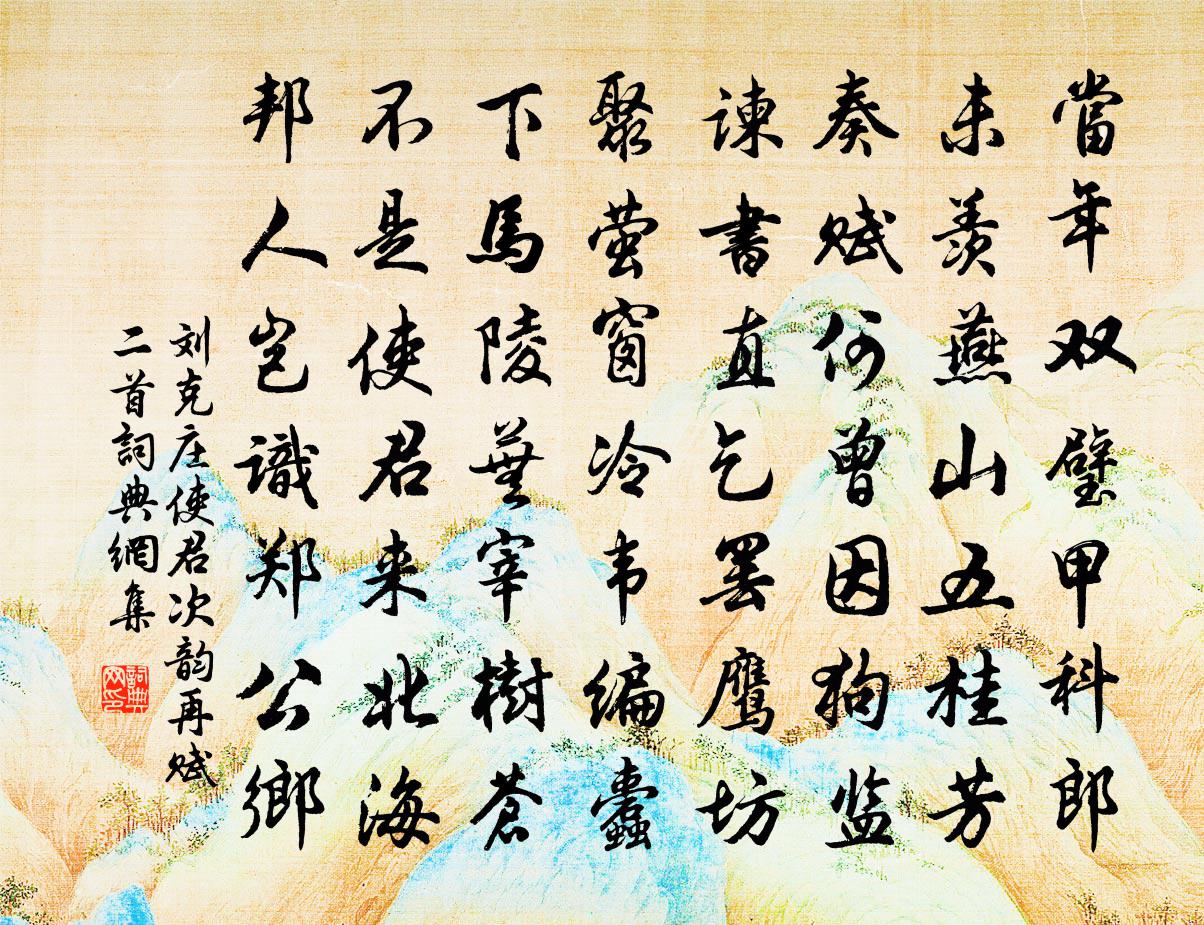 當年双璧甲科郎
未羡燕山五桂芳
奏赋何曾因狗监
諫書直乞罢鹰坊
聚萤窗冷韦编蠹
下馬陵蕪宰樹蒼
不是使君来北海
邦人岂識郑公鄉
刘克庄使君次韵再赋
二首詞典網集
詞典